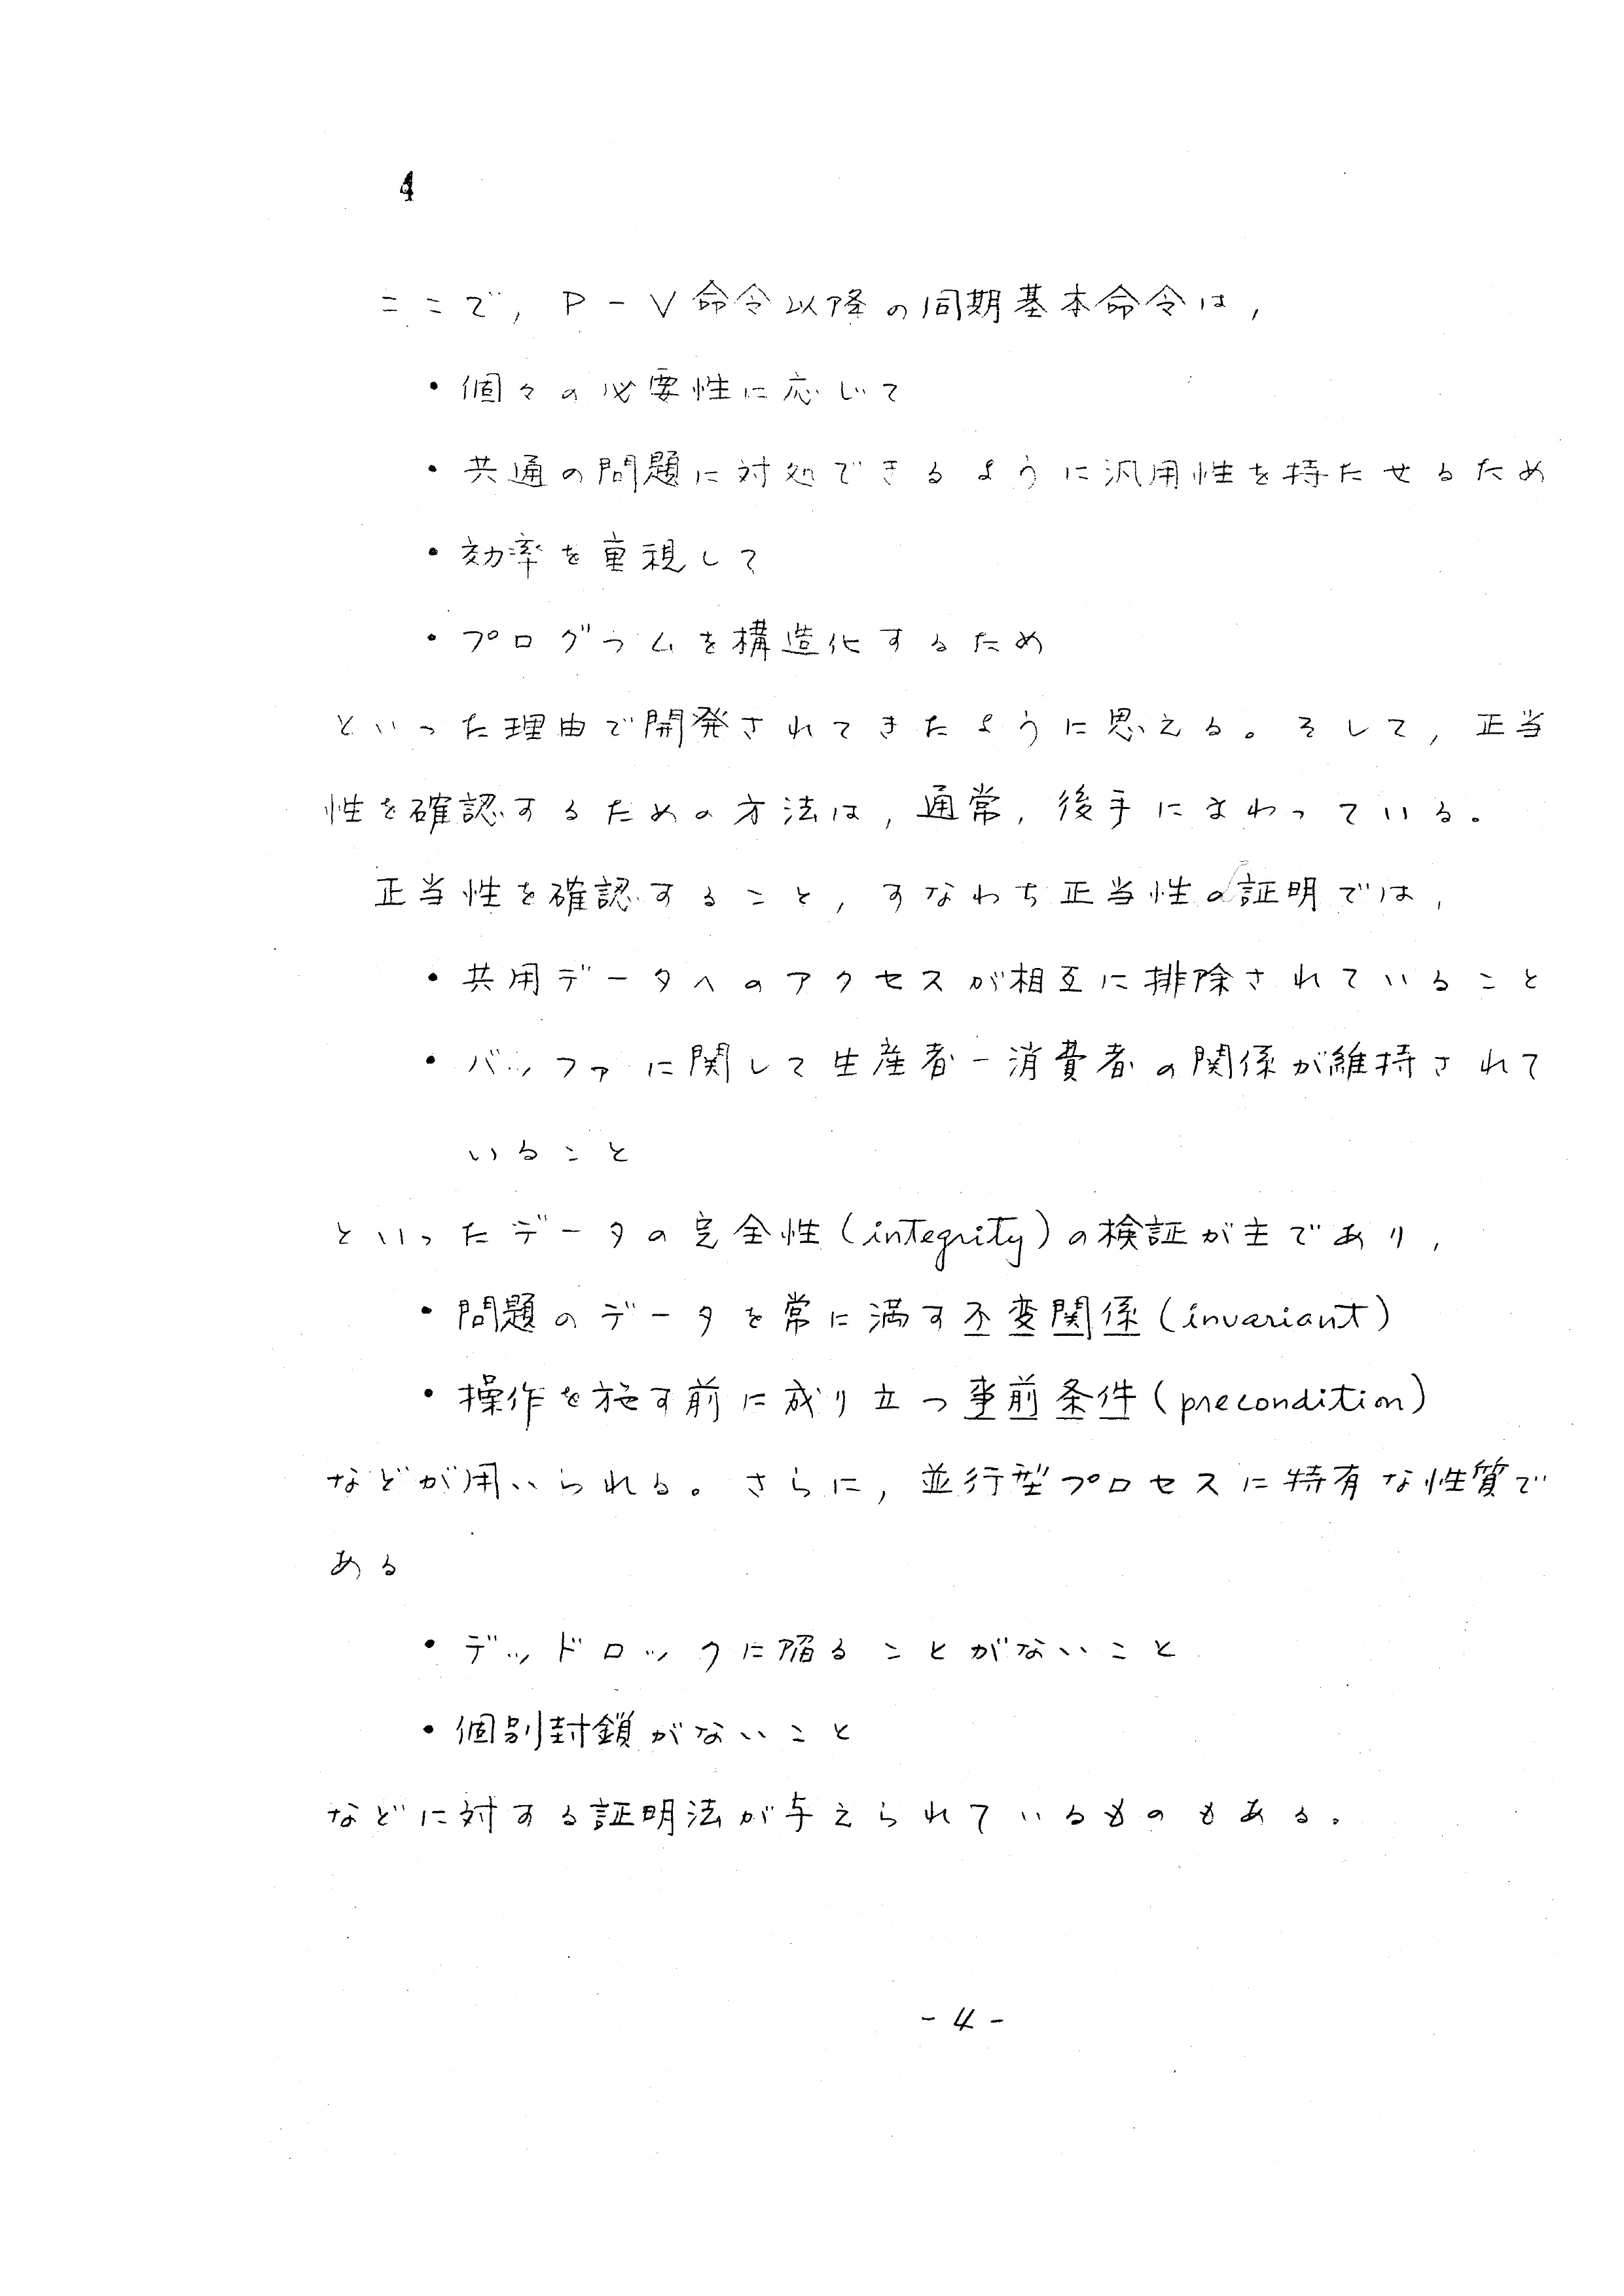 4
ここで，P－V命令以降の同期基本命令は，
・個々の必要性に応じて
・共通の問題に対処できるように汎用性を持たせるため
・効率を重視して
・プログラムを構造化するため
といった理由で開発されてきたように思える。そして，正当
性を確認するための方法は，通常，後手にまわっている。
正当性を確認すること，すなわち正当性の証明では，
・共用データへのアクセスが相互に排除されていること
・バッファに関して生産者－消費者の関係が維持されて
いること
といったデータの完全性（integrity）の検証が主であり，
・問題のデータを常に満す不変関係（invariant）
・操作を施す前に成り立つ事前条件（precondition）
などが用いられる。さらに，並行型プロセスに特有な性質で
ある
・デッドロックに陥ることがないこと
・個別封鎖がないこと
などに対する証明法が与えられているものもある。
- 4 -